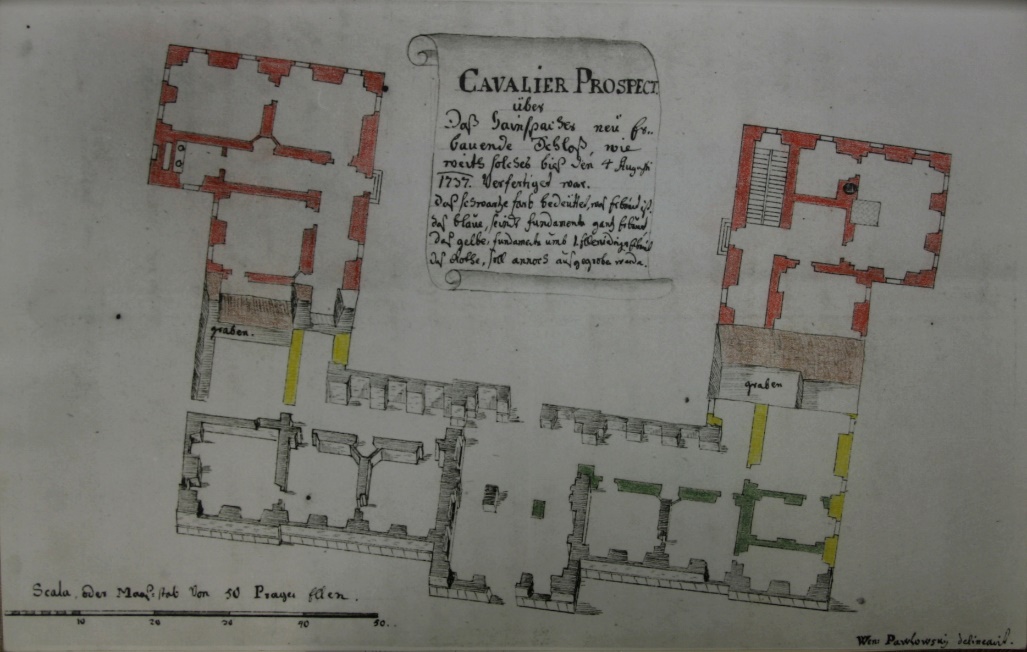 CAVALIER PROSPECT.
über
Daß Hainspacher neü Er-
bauende Schloß, wie
weith solches biß den 4 Augusti
1737. Verfertiget war.
das schwartze fart bedeüttet, was
das blaue, seindt fundamenta gantz
das gelbe, fundamenta umb
das Rothe, soll annoch ausgegrabe werde.
graben.
graben
Scala, oder Maaßstab Von 50 Prager Ellen.
10 20 30 40 50.
Wens Pawlowsky delineavit.